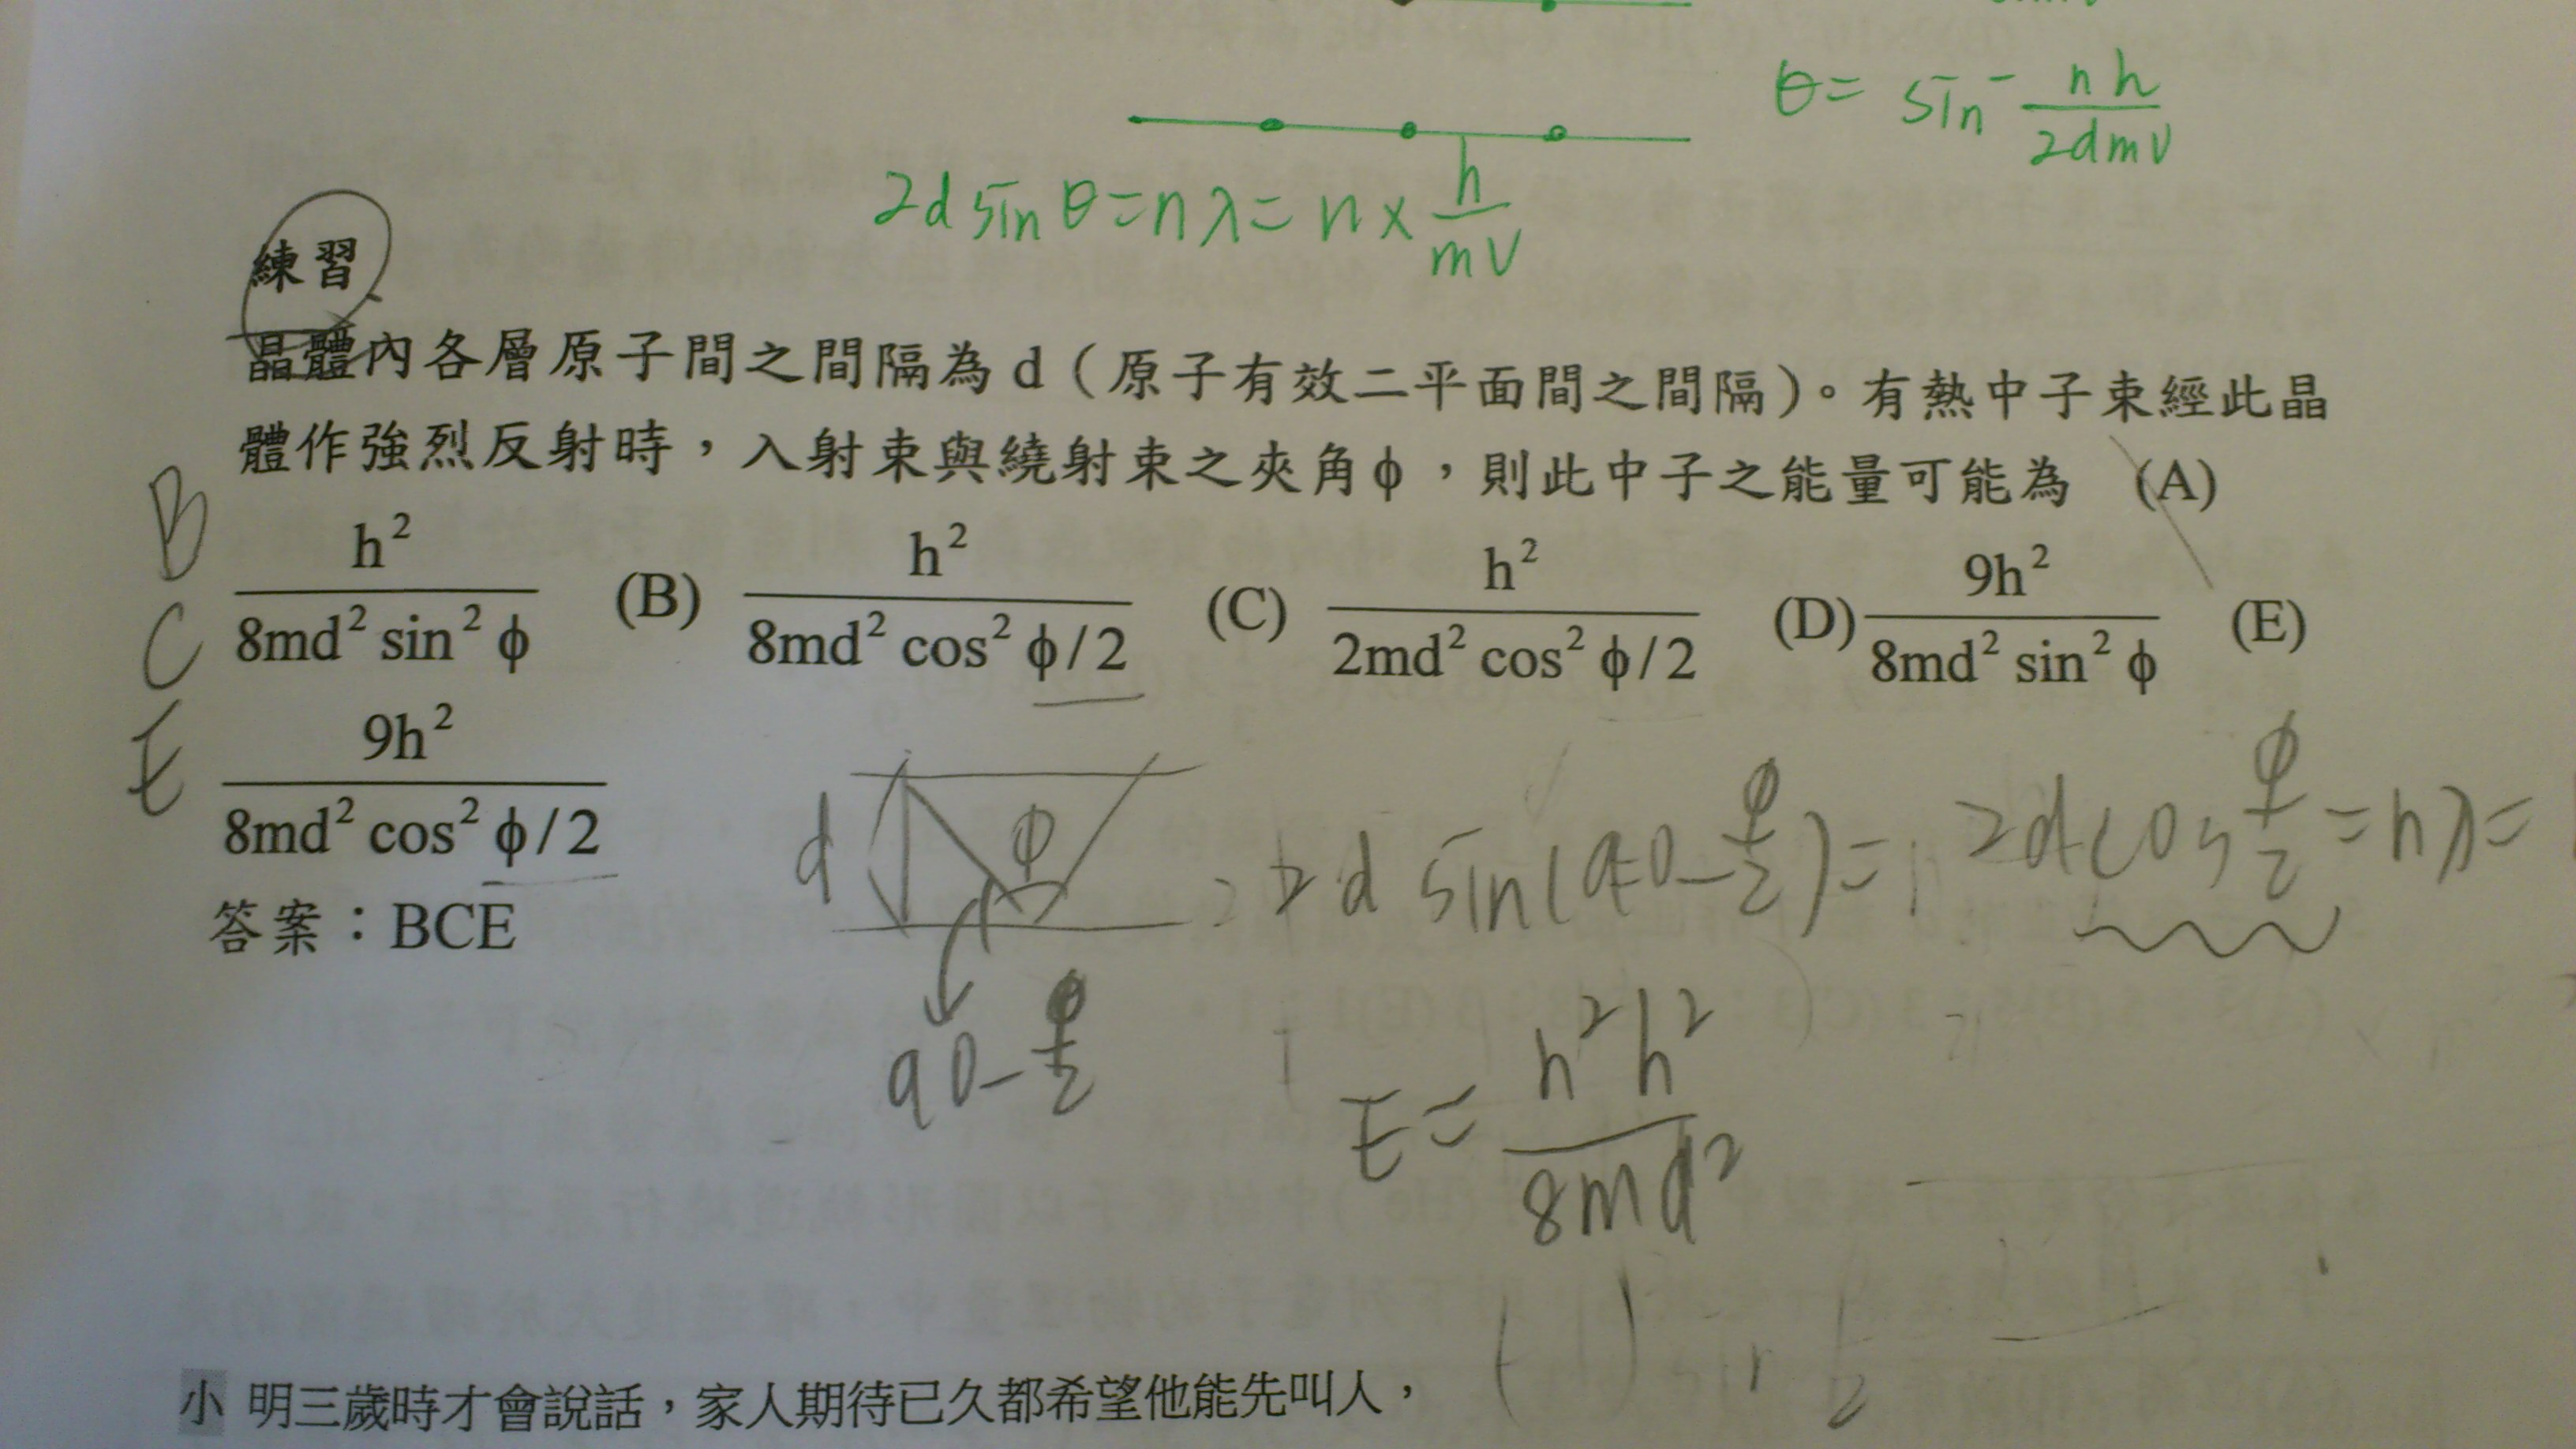 θ = sin⁻ nh / 2dmv
2d sin θ = nλ = n × h / mv
練習
晶體內各層原子間之間隔為 d（原子有效二平面間之間隔）。有熱中子束經此晶
體作強烈反射時，入射束與繞射束之夾角ϕ，則此中子之能量可能為 (A)
B
C
E
h² / 8md² sin² ϕ (B) h² / 8md² cos² ϕ/2 (C) h² / 2md² cos² ϕ/2 (D) 9h² / 8md² sin² ϕ (E)
9h² / 8md² cos² ϕ/2
d ϕ 2d sin(90-ϕ/2)= 2d cos ϕ/2 = nλ =
答案：BCE
90-ϕ/2
E = n²h² / 8md²
小明三歲時才會說話，家人期待已久都希望他能先叫人，